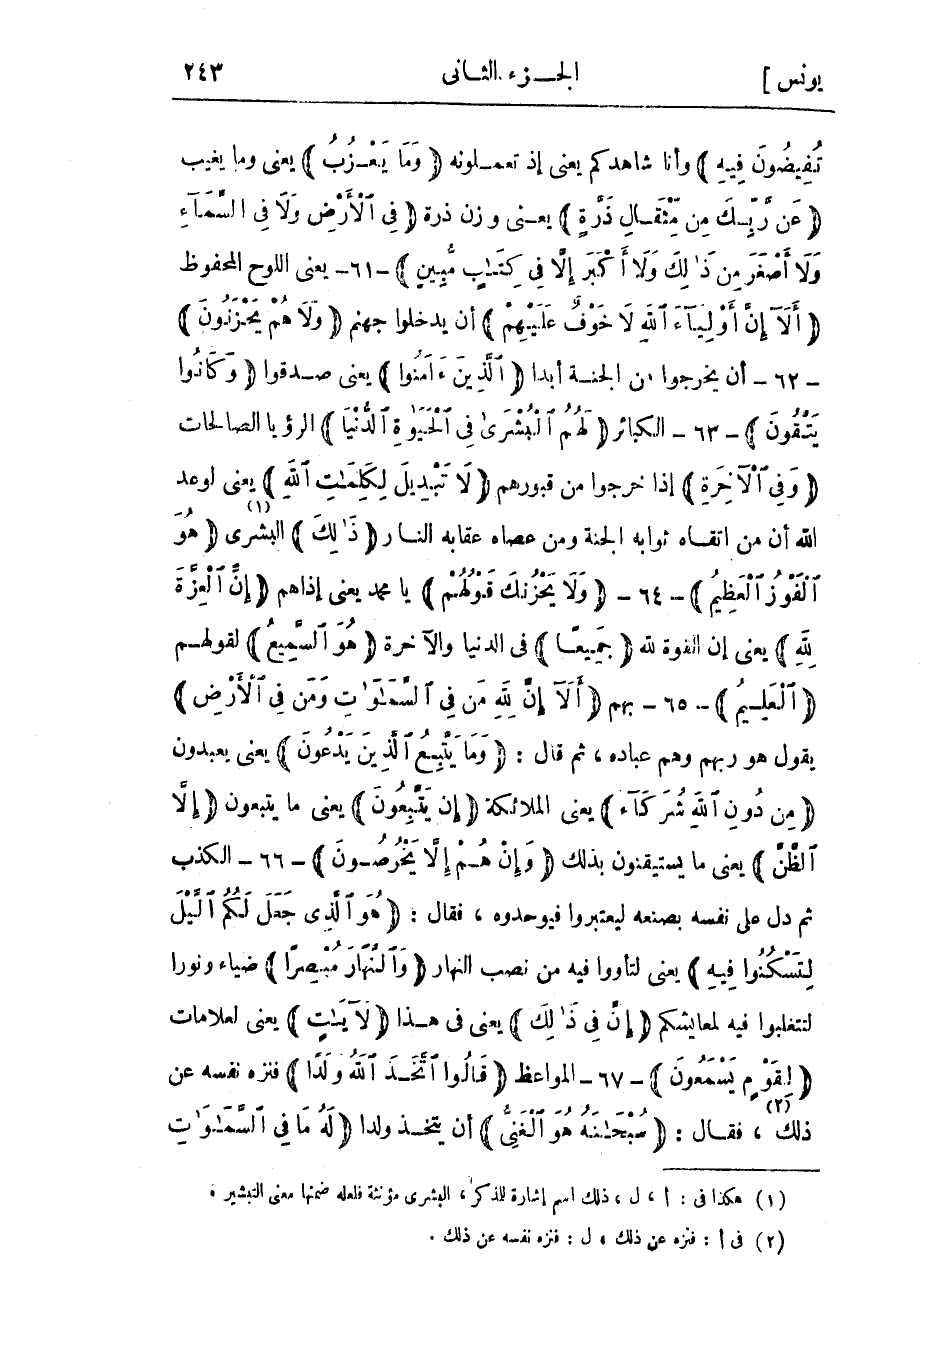 يونس ] الجـــزء الثـانى ٢٤٣
تُفِيضُونَ فِيهِ ﴾ وأنا شاهدكم يعنى إذ تعمـلونه ﴿ وَمَا يَعْـزُبُ ﴾ يعنى وما يغيب
﴿ عَن رَّبِّـكَ مِن مِّثْقَـالِ ذَرَّةٍ ﴾ يعـنى وزن ذرة ﴿ فِى ٱلْأَرْضِ وَلَا فِى ٱلسَّمَآءِ
وَلَا أَصْغَرَ مِن ذَٰلِكَ وَلَا أَكْبَرَ إِلَّا فِى كِتَـٰبٍ مُّبِينٍ ﴾ -٦١- يعنى اللوح المحفوظ
﴿ أَلَآ إِنَّ أَوْلِيَآءَ ٱللهِ لَا خَوْفٌ عَلَيْهِمْ ﴾ أن يدخلوا جهنم ﴿ وَلَا هُمْ يَحْزَنُونَ ﴾
- ٦٢ - أن يخرجوا من الجنـة أبدا ﴿ ٱلَّذِينَ ءَامَنُوا ﴾ يعنى صـدقوا ﴿ وَكَانُوا
يَتَّقُونَ ﴾ - ٦٣ - الكبائر ﴿ لَهُمُ ٱلْبُشْرَىٰ فِى ٱلْحَيَوٰةِ ٱلدُّنْيَا ﴾ الرؤيا الصالحات
﴿ وَفِى ٱلْآخِرَةِ ﴾ إذا خرجوا من قبورهم ﴿ لَا تَبْدِيلَ لِكَلِمَـٰتِ ٱللهِ ﴾ يعنى لوعد
الله أن من اتقـاه ثوابه الجنة ومن عصاه عقابه النـار ﴿ ذَٰلِكَ ﴾ (١) البشرى ﴿ هُوَ
ٱلْفَوْزُ ٱلْعَظِيمُ ﴾ - ٦٤ - ﴿ وَلَا يَحْزُنكَ قَوْلُهُمْ ﴾ يا محمد يعنى إذاهم ﴿ إِنَّ ٱلْعِزَّةَ
لِلهِ ﴾ يعنى إن القوة لله ﴿ جَمِيعًـا ﴾ فى الدنيا والآخرة ﴿ هُوَ ٱلسَّمِيعُ ﴾ لقولهـم
﴿ ٱلْعَلِـيمُ ﴾ - ٦٥ - بهم ﴿ أَلَآ إِنَّ لِلهِ مَن فِى ٱلسَّمَـٰوَٰتِ وَمَن فِى ٱلْأَرْضِ ﴾
يقول هو ربهم وهم عباده ، ثم قال : ﴿ وَمَا يَتَّبِعُ ٱلَّذِينَ يَدْعُونَ ﴾ يعنى يعبدون
﴿ مِن دُونِ ٱللهِ شُرَكَآءَ ﴾ يعنى الملائكة ﴿ إِن يَتَّبِعُونَ ﴾ يعنى ما يتبعون ﴿ إِلَّا
ٱلظَّنَّ ﴾ يعنى ما يستيقنون بذلك ﴿ وَإِنْ هُـمْ إِلَّا يَخْرُصُـونَ ﴾ - ٦٦ - الكذب
ثم دل على نفسه بصنعه ليعتبروا فيوحدوه ، فقال : ﴿ هُوَ ٱلَّذِى جَعَلَ لَكُمُ ٱلَّيْلَ
لِتَسْكُنُوا فِيهِ ﴾ يعنى لتأووا فيه من نصب النهار ﴿ وَٱلنَّهَارَ مُبْصِرًا ﴾ ضياء ونورا
لتتغلبوا فيه لمعايشكم ﴿ إِنَّ فِى ذَٰلِكَ ﴾ يعنى فى هـذا ﴿ لَآيَـٰتٍ ﴾ يعنى لعلامات
﴿ لِقَوْمٍ يَسْمَعُونَ ﴾ - ٦٧ - المواعظ ﴿ قَالُوا ٱتَّخَـذَ ٱللهُ وَلَدًا ﴾ فنزه نفسه عن
ذلك (٢) ، فقـال : ﴿ سُبْحَـٰنَهُ هُوَ ٱلْغَنِىُّ ﴾ أن يتخـذ ولدا ﴿ لَهُ مَا فِى ٱلسَّمَـٰوَٰتِ
(١) هكذا فى : أ ، ل ، ذلك اسم إشارة للذكر ، البشرى مؤنثة فلعله ضمنها معنى التبشير .
(٢) فى أ : فنزه عن ذلك ، ل : فنزه نفسه عن ذلك .